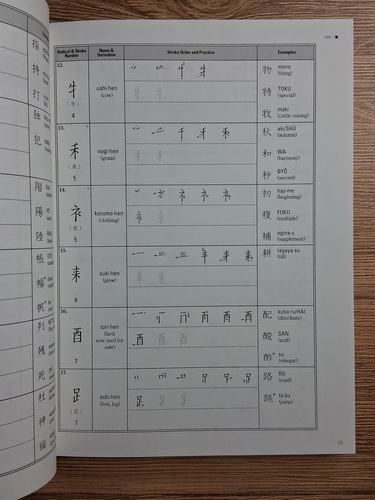 Radical & Stroke Number
Name & Derivation
Stroke Order and Practice
Examples
12.
牛
(牛)
4
ushi-hen
(cow)
物 mono
(thing)
特 TOKU
(special)
牧 maki
(cattle raising)
13.
禾
(禾)
5
nogi-hen
(grain)
秋 aki/SHŪ
(autumn)
和 WA
(harmony)
秒 BYŌ
(second)
14.
衤
(衣)
5
koromo-hen
(clothing)
初 haji-me
(beginning)
複 FUKU
(multiple)
補 ogina-u
(supplement)
15.
耒
6
suki-hen
(plow)
耕 tagaya-su
(till)
16.
酉
7
tori-hen
(bird;
now used for
sake)
配 kuba-ru/HAI
(distribute)
酸 SAN
(acid)
酢* su
(vinegar)
17.
𧾷
(足)
7
ashi-hen
(foot, leg)
路 RO
(road)
跳* to-bu
(jump)
指
持
打
独
犯
階
陽
陸
帳
幅*
帆*
列
残
死
社
神
福